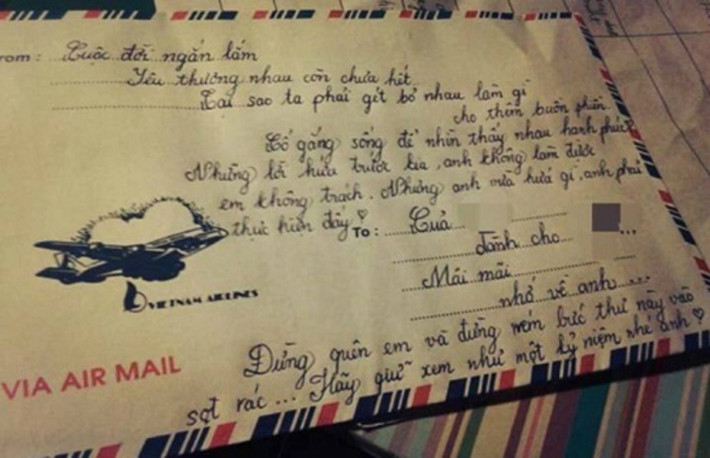 From: Cuộc đời ngắn lắm
Yêu thương nhau còn chưa hết
Tại sao ta phải gít bỏ nhau làm gì
cho thêm buồn phiền
Cố gắng sống để nhìn thấy nhau hạnh phúc
Những lời hứa trước kia, anh không làm được
em không trách. Nhưng anh vừa hứa gì, anh phải
thực hiện đấy ♡
To: Của
dành cho ...
Mãi mãi
nhớ về anh ...
VIETNAM AIRLINES
VIA AIR MAIL
Đừng quên em và đừng ném bức thư này vào
sọt rác... Hãy giữ xem như một kỷ niệm nhé anh ♡